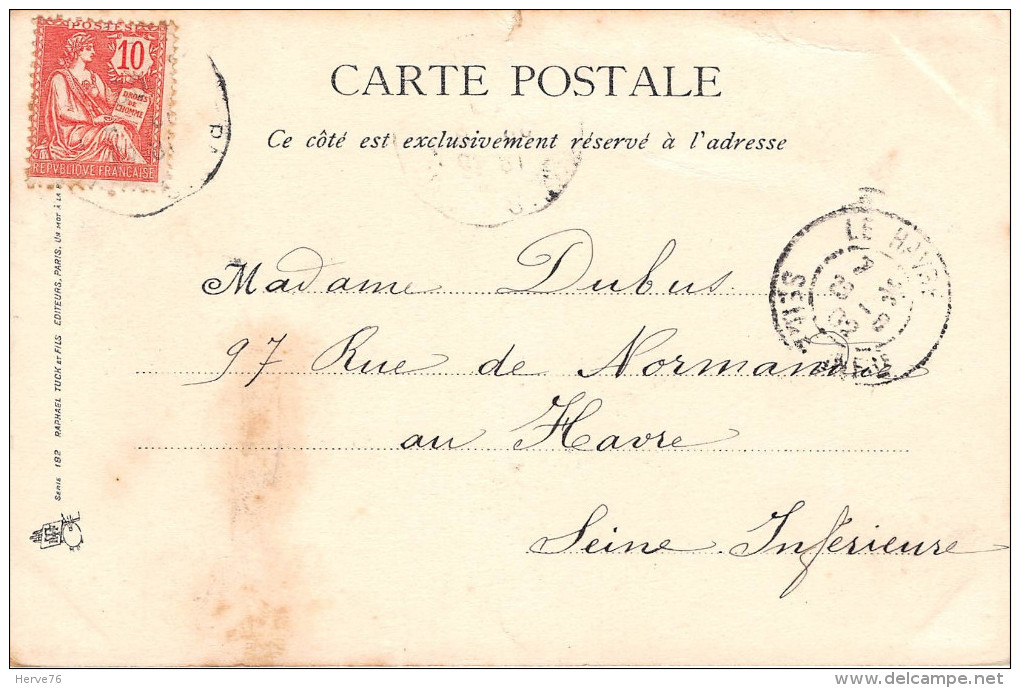 POSTES
10
DROITS
DE
L'HOMME
REPVBLIQVE FRANÇAISE
CARTE POSTALE
Ce côté est exclusivement réservé à l'adresse
LE HAVRE
SEINE
Madame Dubus
97 Rue de Normandie
au Havre
Seine Inférieure
Série 192 RAPHAEL TUCK ET FILS EDITEURS, PARIS. UN MOT À LA
Herve76
www.delcampe.net